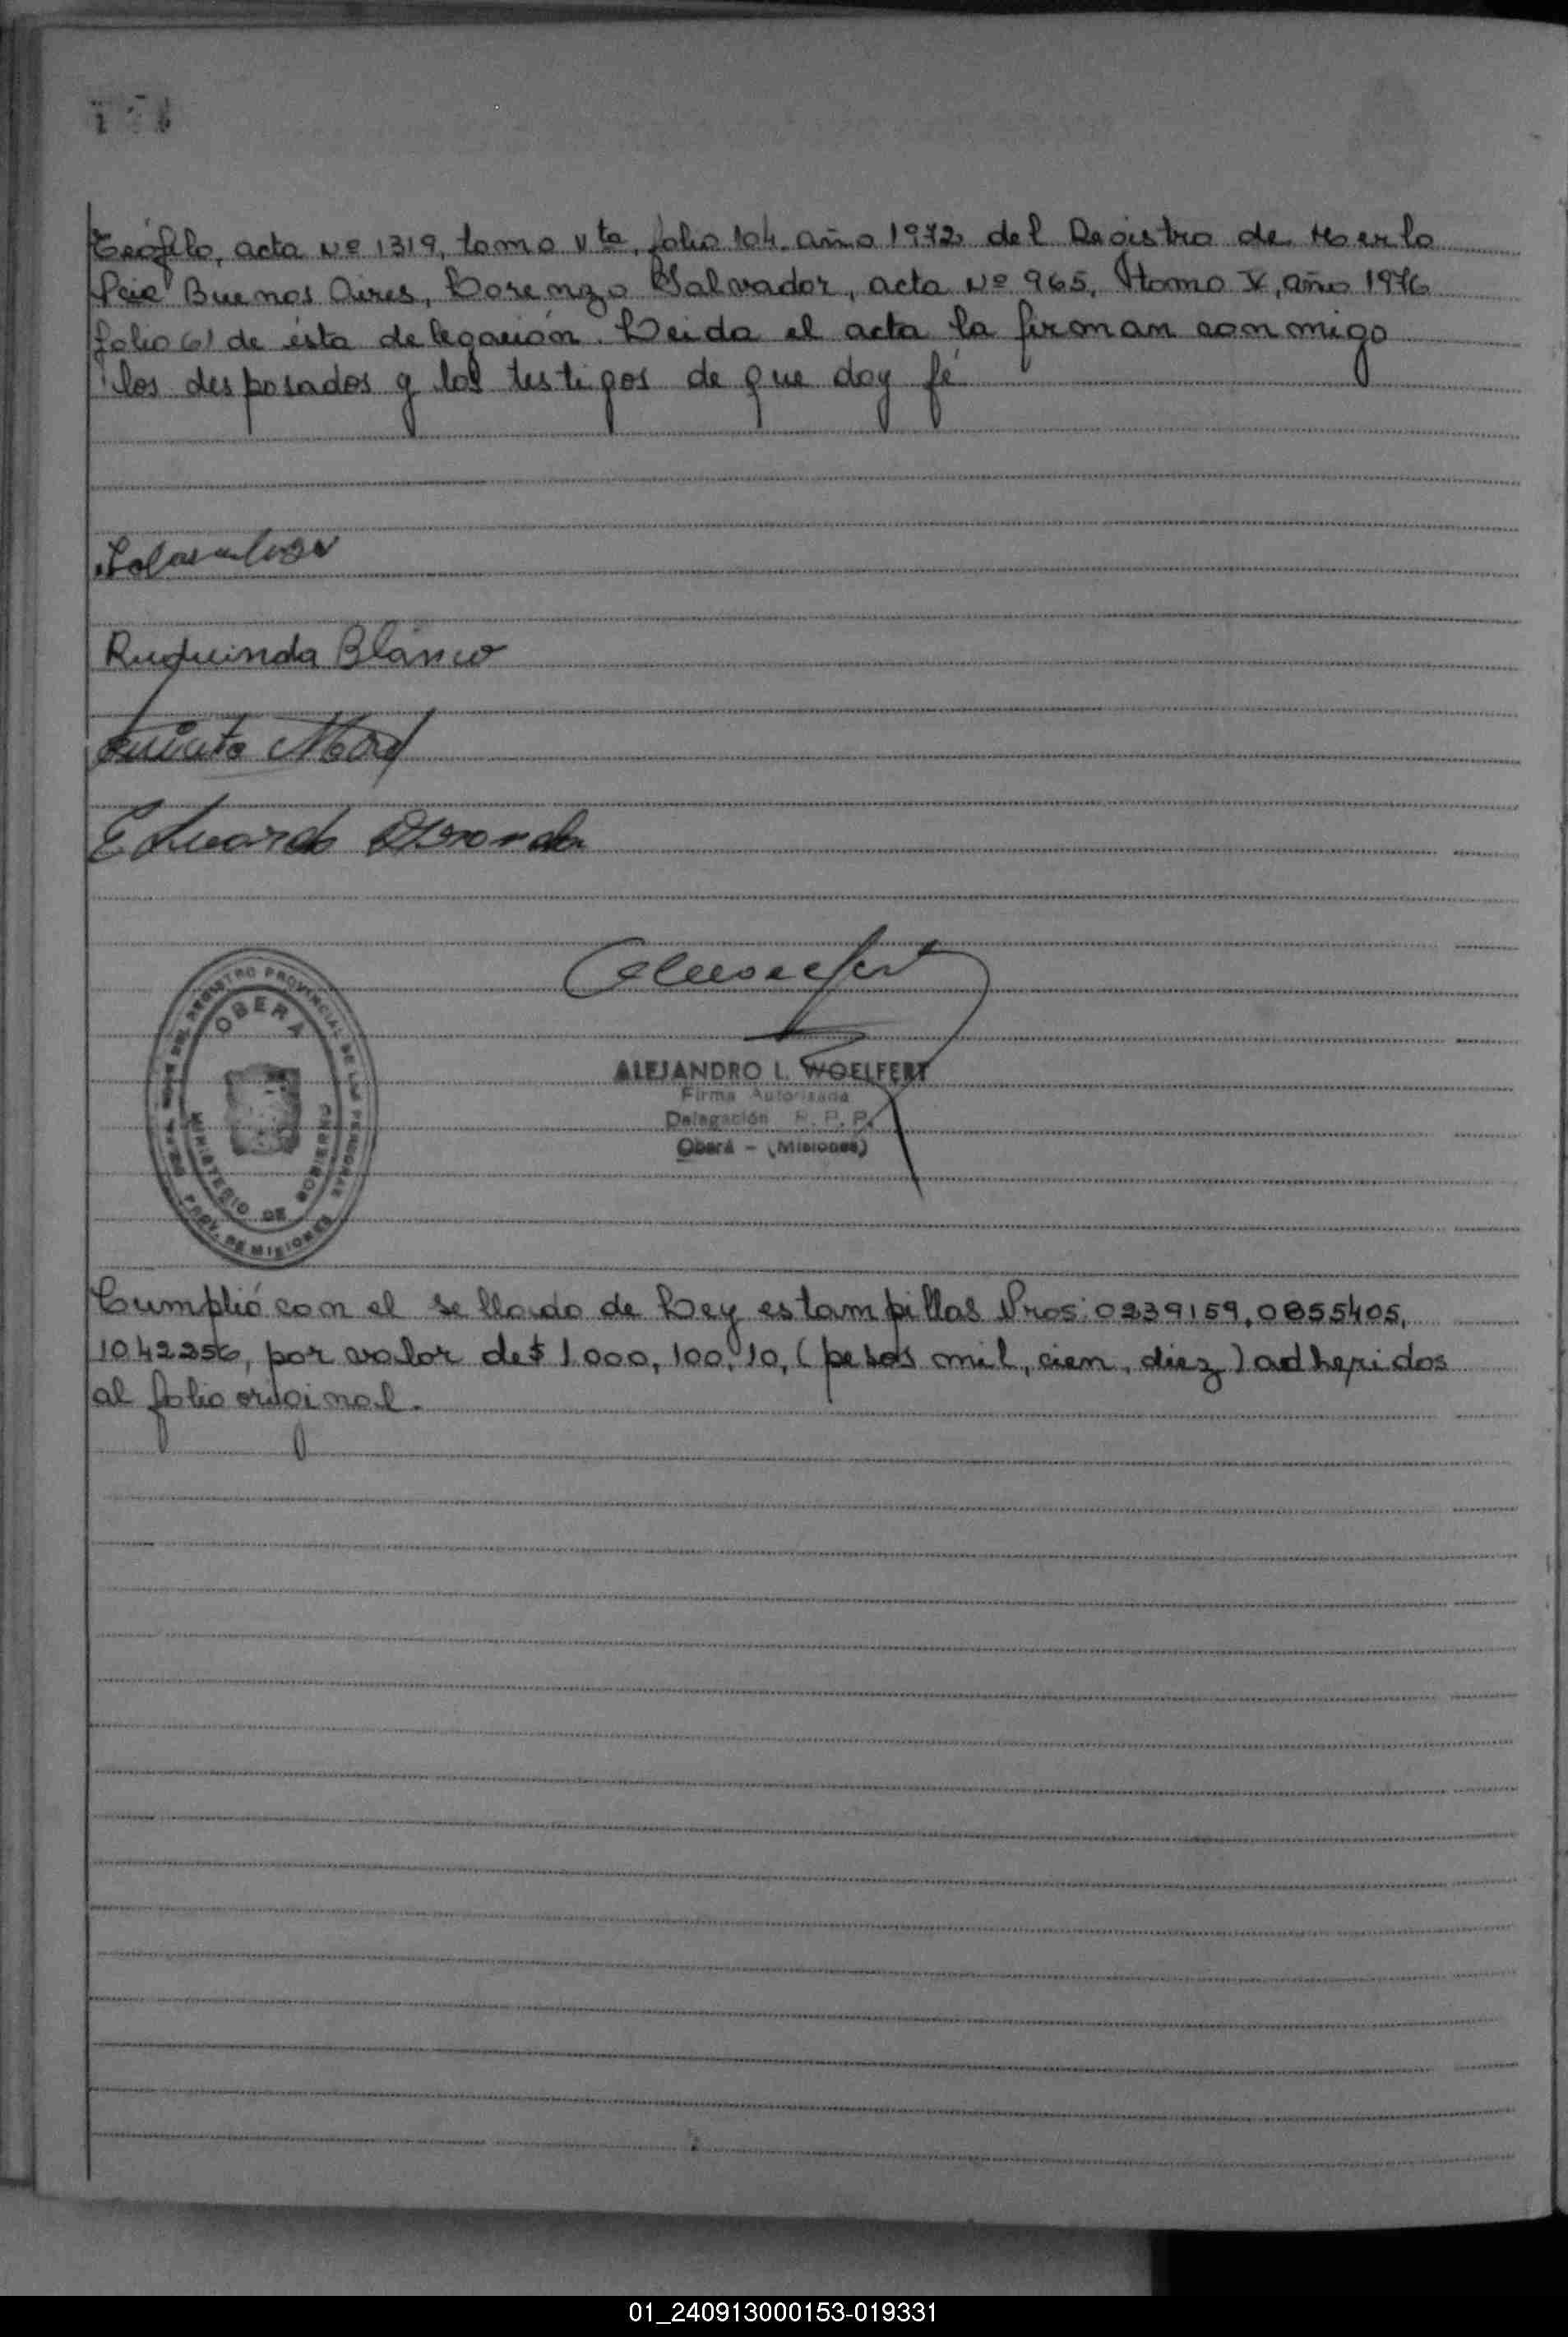 Teófilo, acta Nº 1319, tomo Vto, folio 104, año 1972 del Registro de Merlo
Pcia Buenos Aires, Lorenzo Salvador, acta Nº 965, tomo V, año 1976
folio 61 de ésta delegación. Leida el acta la firman conmigo
los desposados y los testigos de que doy fé
Ruduinda Blanco
Eduardo
OBERA
REGISTRO PROVINCIAL DE LAS PERSONAS
MINISTERIO DE GOBIERNO
PROV. DE MISIONES
ALEJANDRO L. WOELFERT
Firma Autorizada
Delegación R. P. P.
Oberá - (Misiones)
Cumplió con el sellado de Ley estampillas Nros: 0239159, 0855405,
1042256, por valor de $ 1000, 100, 10, (pesos mil, cien, diez) adheridos
al folio original.
01_240913000153-019331